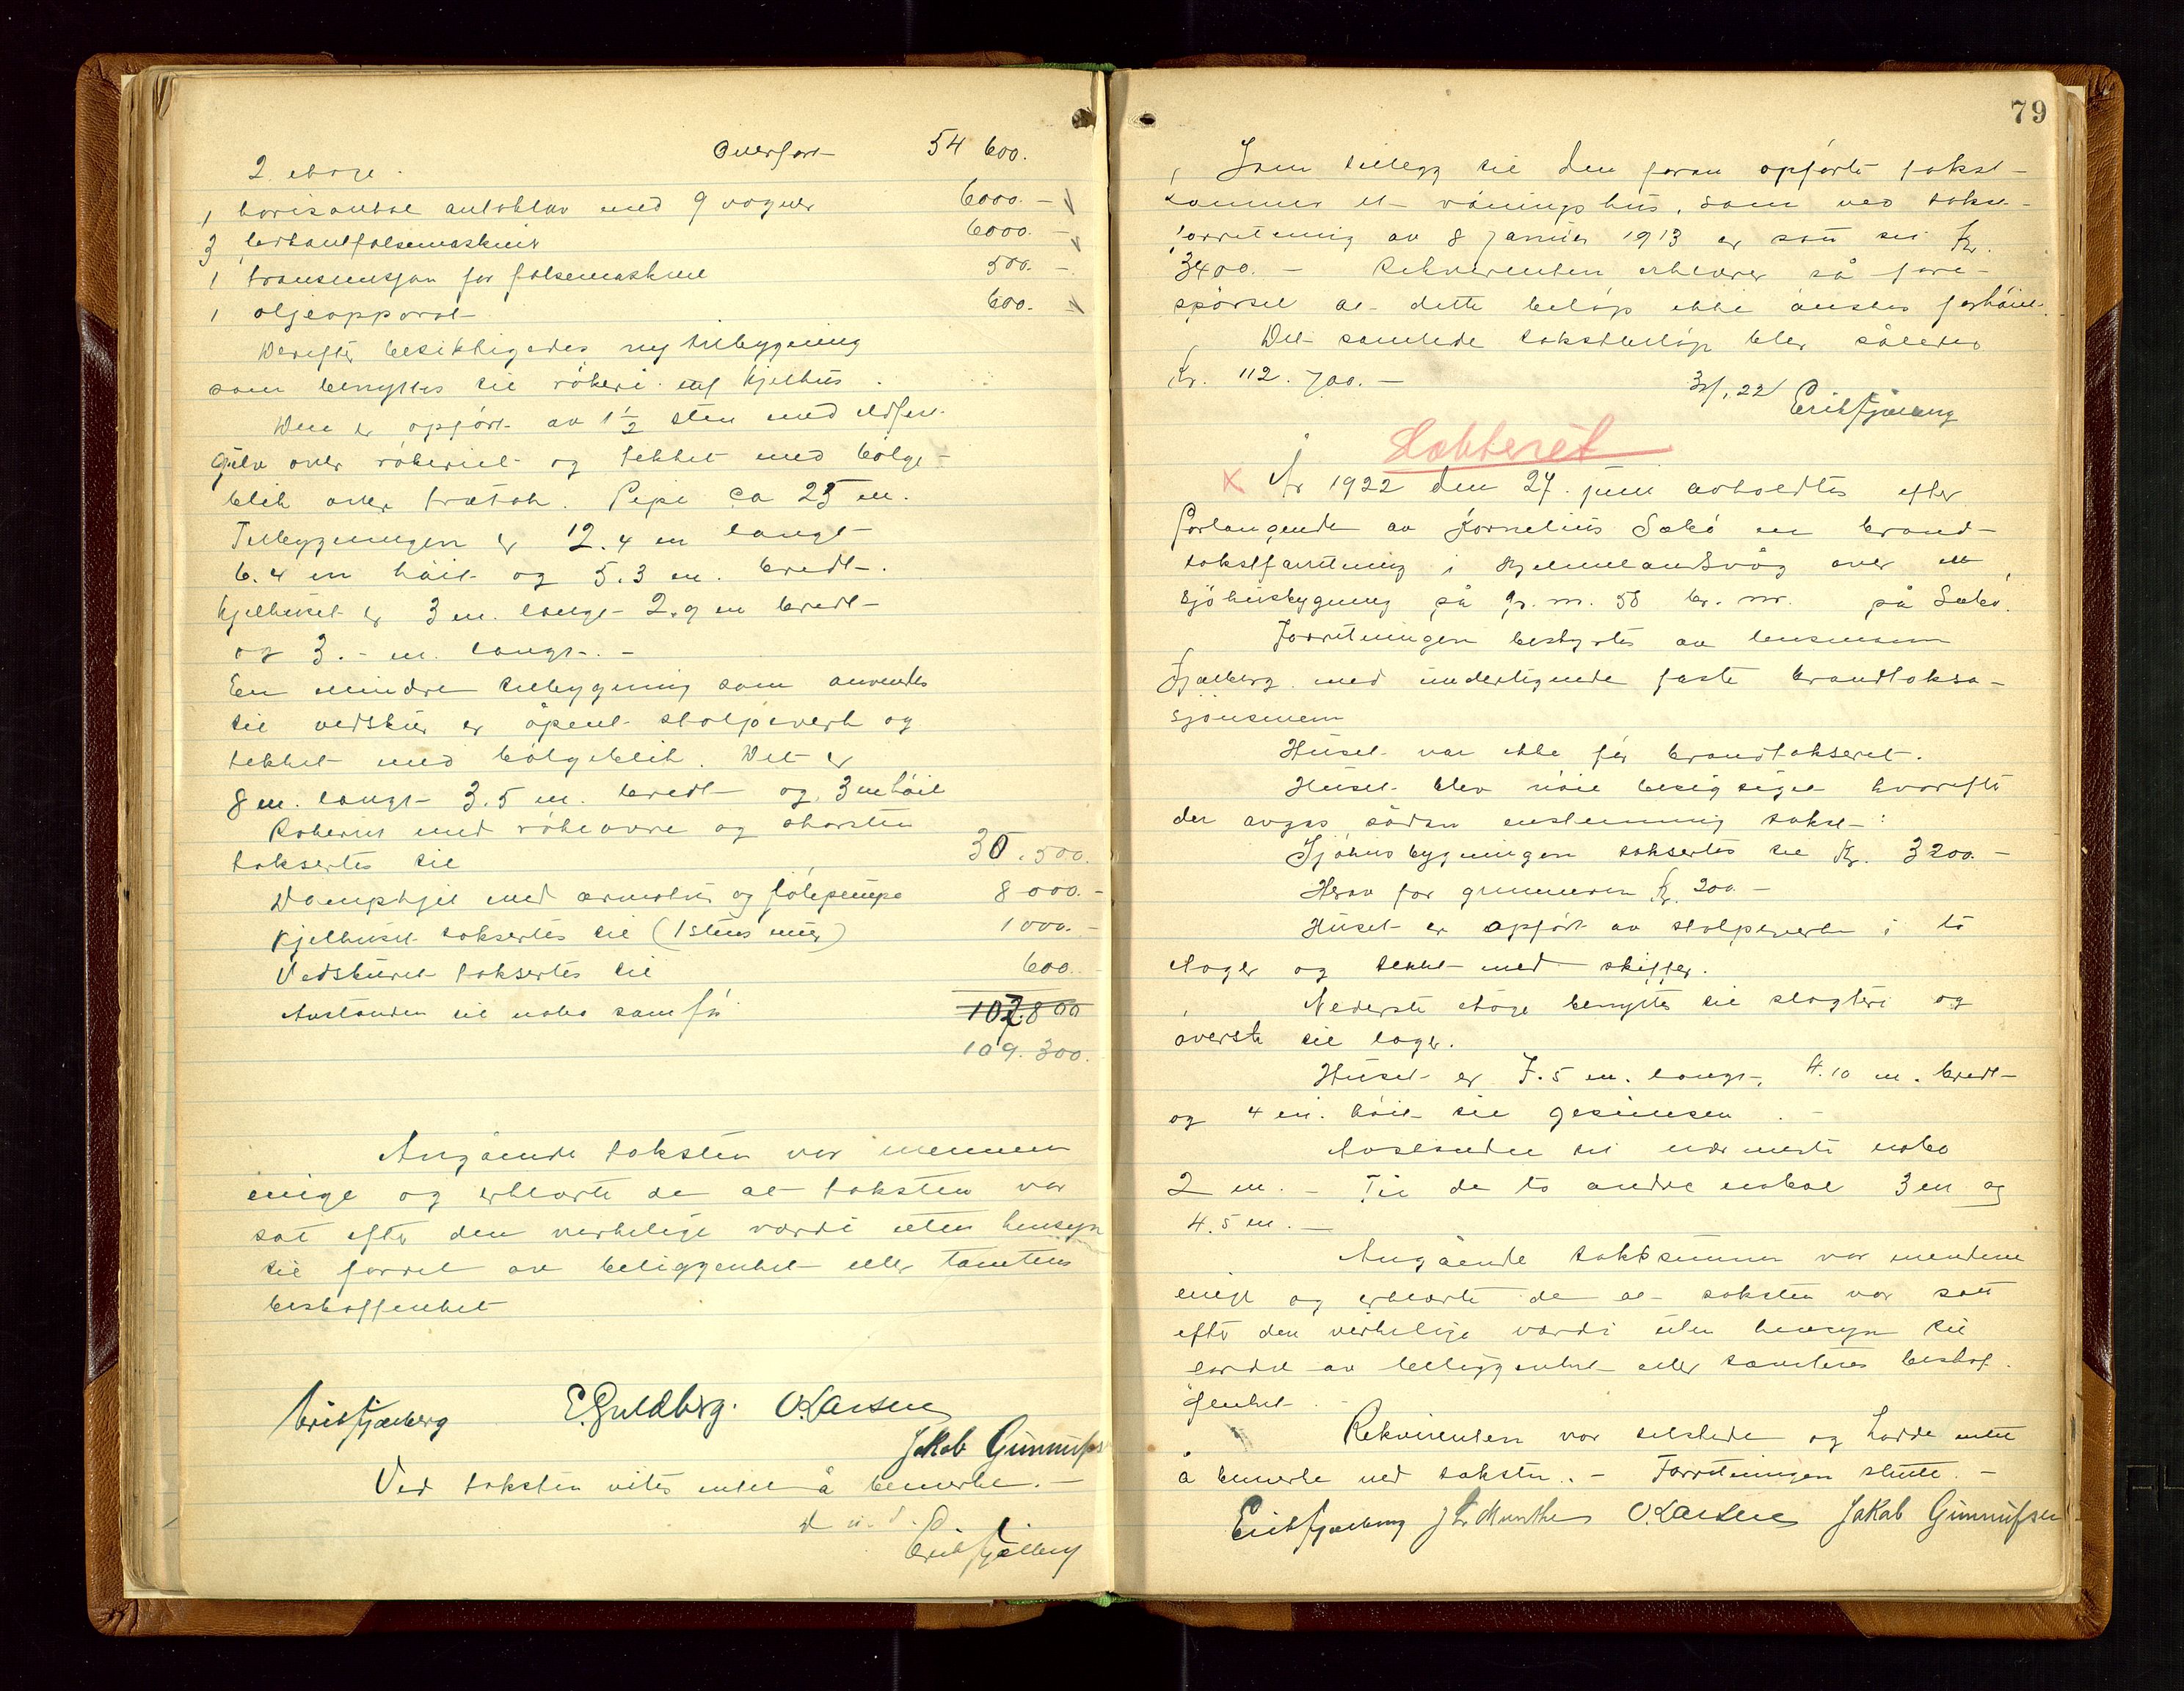 Overført 54 600.
2 etage.
1 horisontal autoklav med 9 vogner 6000.-
3 falsemaskiner 6000.-
1 transmisjon for falsemaskine 500.-
1 oljeapparat 600.-
Derefter besiktigedes ny tilbygning
som benyttes til røkeri og kjelhus.
Den er opført av 1½ sten med
gulv over røkeriet og tekket med bølge-
blik over trætak. Pipe ca 25 m.
Tilbygningen er 12.4 m langt
6.4 m høit og 5.3 m. bredt.
Kjelhuset er 3 m. langt 2.9 m bredt
og 3.- m. langt.-
En mindre tilbygning som anvendes
til vedskur er åpent stolpeverk og
tekket med bølgeblik. Det er
8 m. langt 3.5 m. bredt og 3 m høit
Røkeriet med røkeovne og skorsten
taksertes til 30.500.
Dampkjel med armatur og fødepumpe 8 000.-
Kjelhuset taksertes til (1 stens mur) 1000.-
Vedskuret taksertes til 600.
Avstanden til nabo som før 107800
109.300.
Angående taksten var mennene
enige og erklærte de at taksten var
sat efter den verkelige værdi uten hensyn
til fordel av beliggenhet eller tomtens
beskaffenhet
Erik Fjælberg E. Guldberg. O. Larsen
Jakob Gunnufsen
Ved taksten vites intet å bemerke.-
D. u. s.
Erik Fjælberg
79
Som tillegg til den foran opførte takst
kommer et våningshus, som ved takst-
forretning av 8 januar 1913 er satt til Kr.
3400.- Rekvirenten erklærer på fore-
spørsel at dette beløp ikke ønskes forhøiet.
Det samlede takstbeløp blev således
Kr. 112.700.-
22 Erik Fjælberg
X År 1922 den 27. juni avholdtes efter
forlangende av Kornelius Sæbø en brand-
takstforretning i Hjelmelandsvåg over en
sjøhusbygning på gr. nr. 58 br. nr. på Sæbø.
Forretningen bestyrtes av lensmann
Fjælberg med undertignede faste brandtaksa-
sjonsmenn
Huset var ikke før brandtakseret.
Huset blev nøie besigtiget hvorefter
der avgas sådan enstemmig takst:
Sjøhusbygningen taksertes til Kr. 3200.-
Herav for grunmuren Kr. 200.-
Huset er opført av stolpeverk i to
etager og tekket med skiffer.
Nederste etage benyttes til slagteri og
øverste til lager.
Huset er 7.5 m. langt, 4.10 m. bredt
og 4 m. høit til gesimsen.-
Avstanden til nærmeste nabo
2 m.- Til de to andre naboer 3 m og
4.5 m.-
Angående takstsummen var mennene
enige og erklærte de at taksten var satt
efter den verkelige værdi uten hensyn til
fordel av beliggenhet eller tomtens beskaf-
fenhet.
Rekvirenten var tilstede og hadde intet
å bemerke ved taksten.- Forretningen slutt.-
Erik Fjælberg J L Munthe O. Larsen Jakob Gunnufsen